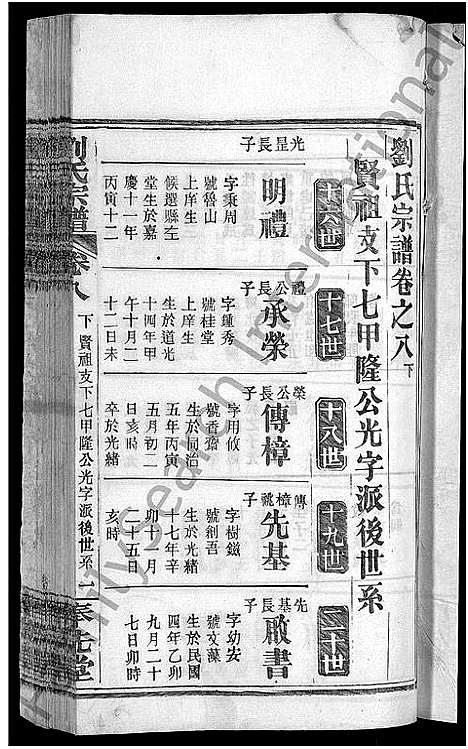 劉氏宗譜卷之八下
賢祖支下七甲隆公光字派後世系
十六世
十七世
十八世
十九世
二十世
光昱長子
明禮
字秉周
號魯山
上庠生
候選縣左
堂生於嘉
慶十一年
丙寅十二
禮公長子
承榮
字鍾秀
號桂堂
上庠生
生於道光
十四年甲
午十月二
十二日未
榮公長子
傳樟
字用攸
號香蓀
生於同治
五年丙寅
五月初二
日亥時
卒於光緒
傳樟祧子
先基
字樹鎡
號創吾
生於光緒
十七年辛
卯十月
二十五日
亥時
先基長子
啟書
字幼安
號文藻
生於民國
四年乙卯
九月二十
七日卯時
劉氏宗譜
卷八
下賢祖支下七甲隆公光字派後世系
一
奉先堂
FamilySearch International